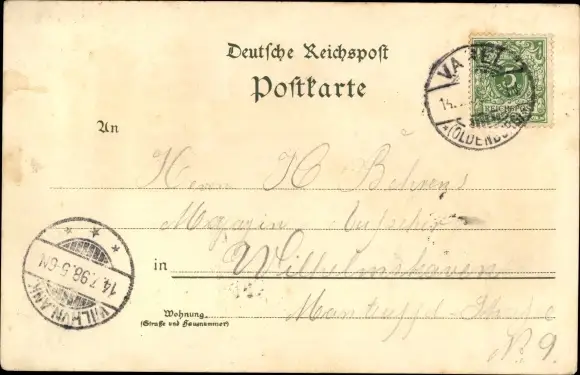 Deutsche Reichspost
Postkarte
VAREL
14.
(OLDENBURG)
5
REICHSPOST
An
Herrn H Behrens
Magazin Aufseher
in Wilhelmshaven
Wohnung
(Straße und Hausnummer)
Manteuffel-Straße
№ 9.
WILHLMHVN
14.7.98.5-6N